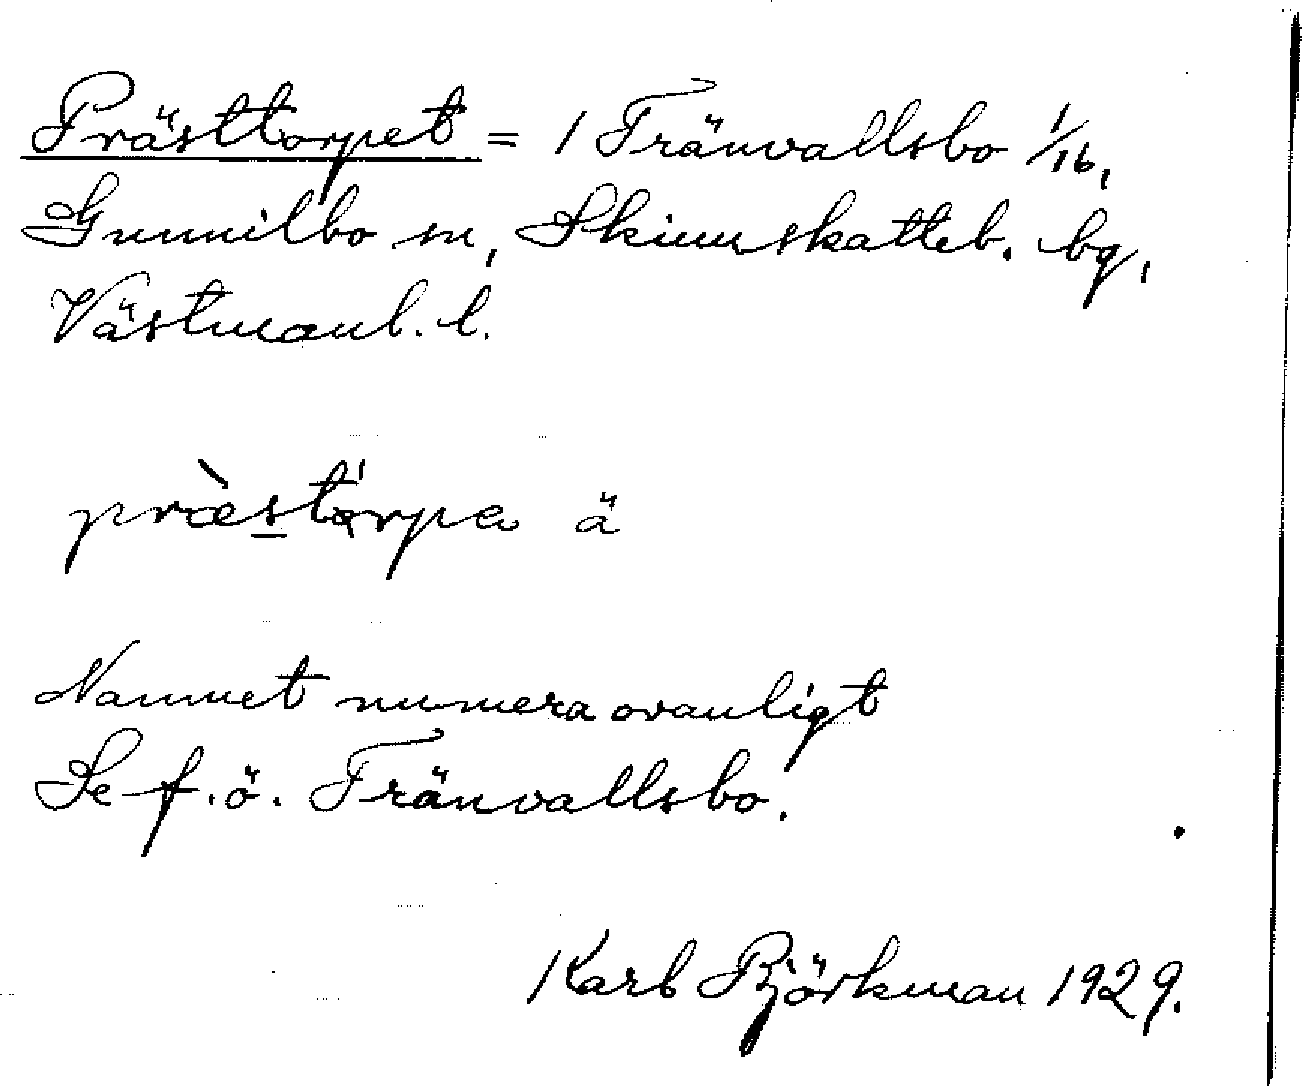 Prästtorpet = 1 Tränvallsbo 1/16,
Gunnilbo sn, Skinnskatteb. bg,
Västmanl. l.
præstɷrpa ä
Namnet numera ovanligt
Se f.ö. Tränvallsbo.
Karl Björkman 1929.